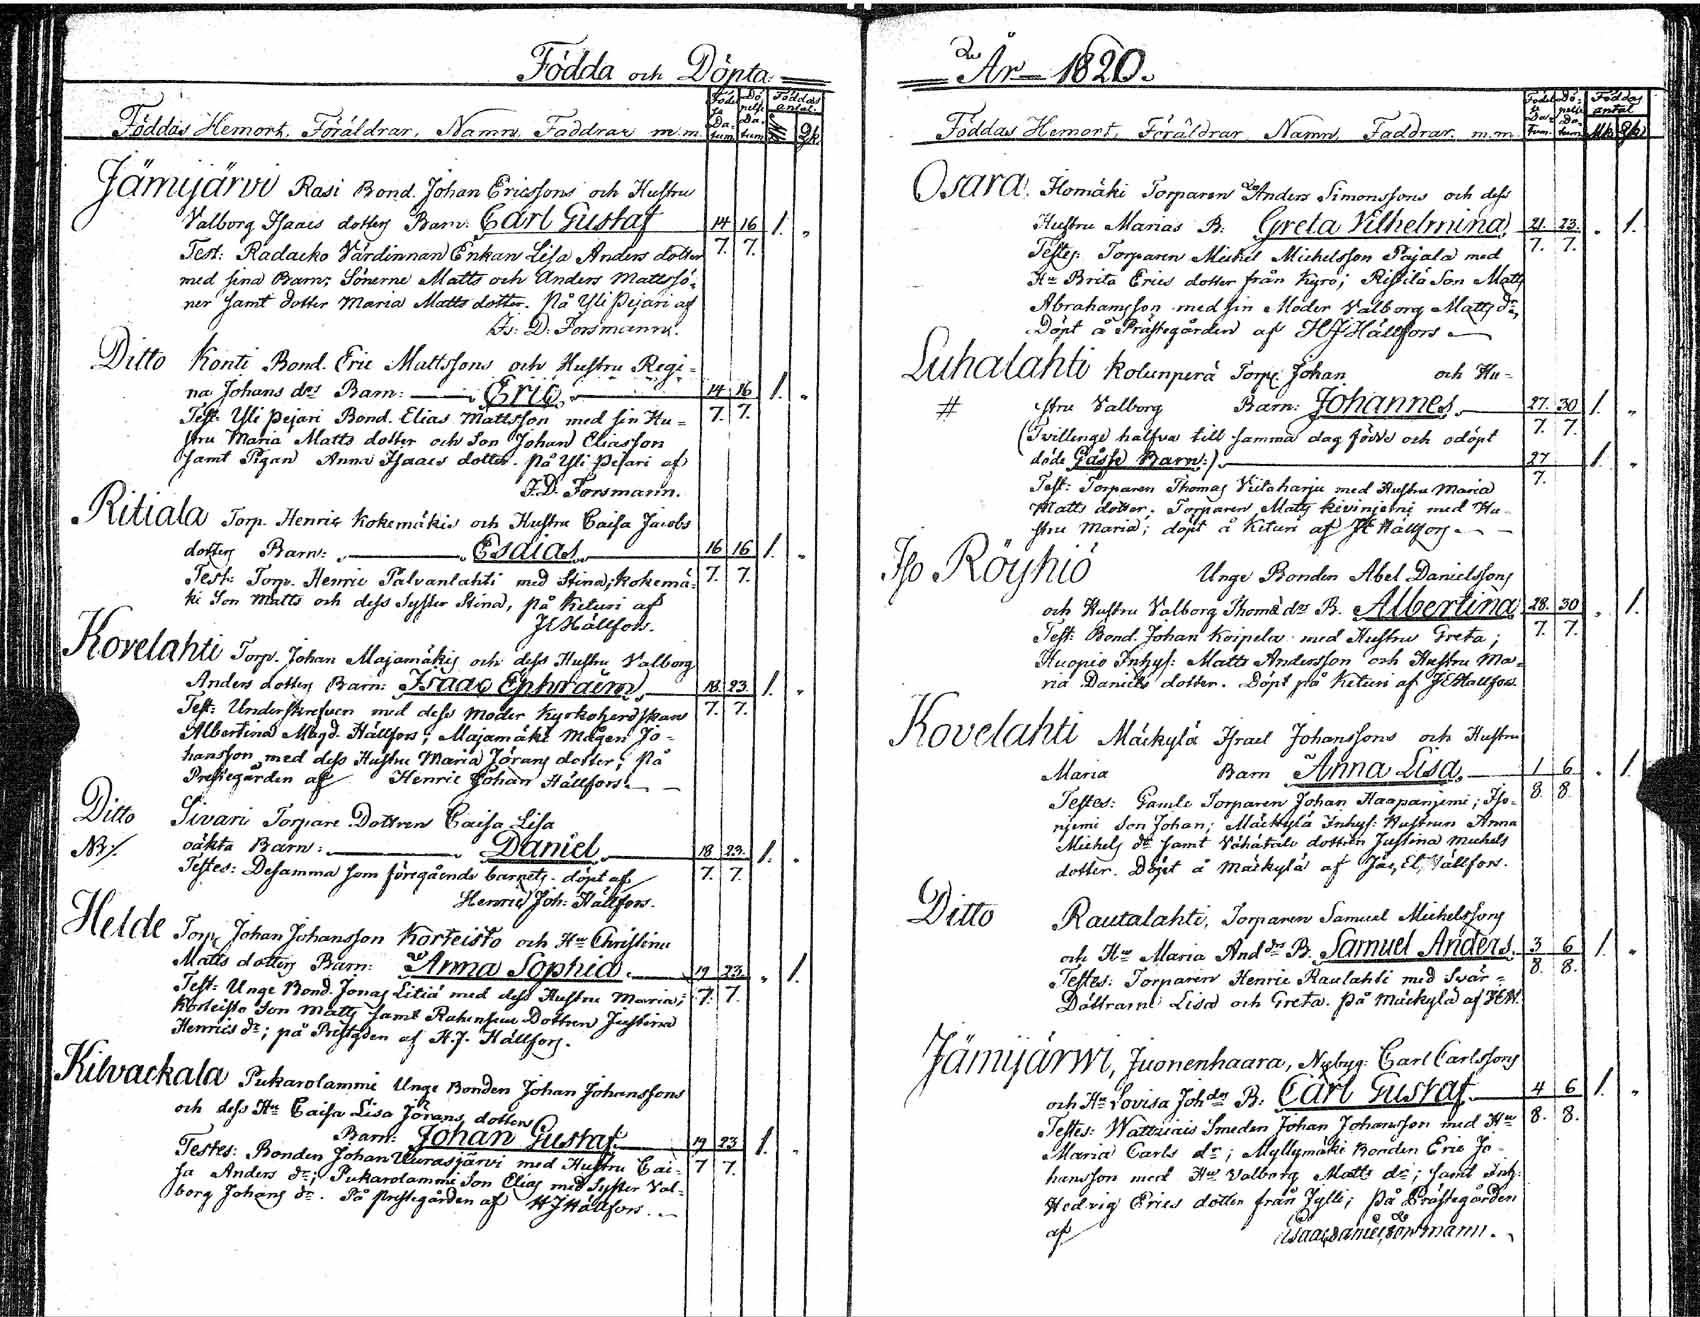 Födda och Döpta
Föddas Hemort, Föräldrar, Namn, Faddrar m.m. Födelse Datum Döpelse Datum Föddas antal. Mk Qk
Jämijärvi Rasi Bond. Johan Ericssons och Hustru
Valborg Isaacs dotters Barn: Carl Gustaf 14 16 1. „
Test: Radacko Värdinnan Enkan Lisa Anders dotter 7. 7.
med sina Barn; Sönerne Matts och Anders Mattssö-
ner samt dotter Maria Matts dotter. På Yli Pejari af
Is: D: Forsmann.
Ditto Konti Bond. Eric Mattssons och Hustru Regi-
na Johans drs Barn: Eric 14 16 1. „
Test: Yli Pejari Bond. Elias Mattsson med sin Hu- 7. 7.
stru Maria Matts dotter och Son Johan Eliasson
samt Pigan Anna Isaacs dotter. på Yli Pejari af
I.D. Forsmann.
Ritiala Torp. Henric Kokemäkis och Hustru Caisa Jacobs
dotters Barn: Esaias 16 16 1. „
Test: Torp. Henric Palvanlahti med Stina; Kokemä- 7. 7.
ki Son Matts och dess Syster Stina, på Kituri af
JE Hällfors.
Kovelahti Torp. Johan Majamäkis och dess Hustru Valborg
Anders dotters Barn: Isaac Ephraim 18 23 1. „
Test: Underskrefven med dess Moder Kyrkoherdskan 7. 7.
Albertina Magd. Hällfors; Majamäki Mågen Jo-
hansson med dess Hustru Maria Jörans dotter; på
Prestegården af Henric Johan Hällfors.
Ditto Sivari Torpare Dottren Caisa Lisa
NB: oäkta Barn: Daniel 18 23. 1. „
Testes: Desamma som föregående barnets. döpt af 7. 7.
Henric Joh: Hällfors.
Helde Torp. Johan Johansson Korteisto och Hu Christina
Matts dotters Barn: Anna Sophia 19 23. „ 1.
Test: Unge Bond. Jonas Litiä med dess Hustru Maria; 7. 7.
Korteisto Son Matts samt Dottren Justina
Henrics dr; på Prestgden af H.J. Hällfors.
Kilvackala Pukarolammi Unge Bonden Johan Johanssons
och dess Hu Caisa Lisa Jörans dotters
Barn: Johan Gustaf 19 23 1. „
Testes: Bonden Johan Uurasjärvi med Hustru Cai- 7 7.
sa Anders dr; Pukarolammi Son Elias med Syster Val-
borg Johans dr. På prestegården af HJ Hällfors.
År 1820.
Föddas Hemort, Föräldrar, Namn, Faddrar. m.m. Födelse Datum. Döpelse Datum Föddas antal Mk Qk
Osara. Homäki Torparen Anders Simonssons och dess
Hustru Marias B: Greta Vilhelmina. 21. 23. „ 1.
Testes: Torparen Michel Michelsson Pajala med 7. 7.
Hu Brita Erics dotter från Kyro; Ristilä Son Matts
Abrahamsson med sin Moder Valborg Matts dr,
Döpt å Prästegården af HJ Hällfors
Luhalahti Kolunperä Torp. Johan och Hu-
# stru Valborg Barn: Johannes 27. 30 1. „
(Tvillinge halfva till samma dag födde och odöpt 7. 7.
döde Gåsse Barn:) 27 1. „
Test: Torparen Thomas Viitaharju med Hustru Maria 7.
Matts dotter. Torparen Matts Kivinjemi med Hu-
stru Maria; döpt å Kituri af JE Hällfors
Iso Röyhiö Unge Bonden Abel Danielssons
och Hustru Valborg Thomæ drs B. Albertina 28. 30 „ 1.
Test: Bond. Johan Koipela med Hustru Greta; 7. 7.
Kuopio Inhys: Matts Andersson och Hustru Ma-
ria Daniels dotter. Döpt på Kituri af JE Hällfors.
Kovelahti Mäckylä Israel Johanssons och Hustru
Maria Barn Anna Lisa 1 6 „ 1.
Testes: Gamle Torparen Johan Haapanjemi; Iso- 8. 8.
njemi Son Johan; Mäckylä Inhys: Hustrun Anna
Michels dr samt Vähätalo dottren Justina Michels
dotter. Döpt å Mäckylä af Jac. El. Hällfors.
Ditto Rautalahti, Torparen Samuel Michelssons
och Hu Maria And drs B. Samuel Anders 3 6 1. „
Testes: Torparen Henric Raulahti med Svär- 8. 8.
Döttrarne Lisa och Greta. På Mäckylä af JEH.
Jämijärwi, Juonenhaara, Nybyg: Carl Carlssons
och Hu Lovisa Joh drs B: Carl Gustaf 4 6 1. „
Testes: Smeden Johan Johansson med Hu 8. 8.
Maria Carls dr; Myllymäki Bonden Eric Jo-
hansson med Hu Valborg Matts dr; samt Inh:
Hedvig Erics dotter från Jylli; På Prästegården
af Isaac Daniel Forsmann.